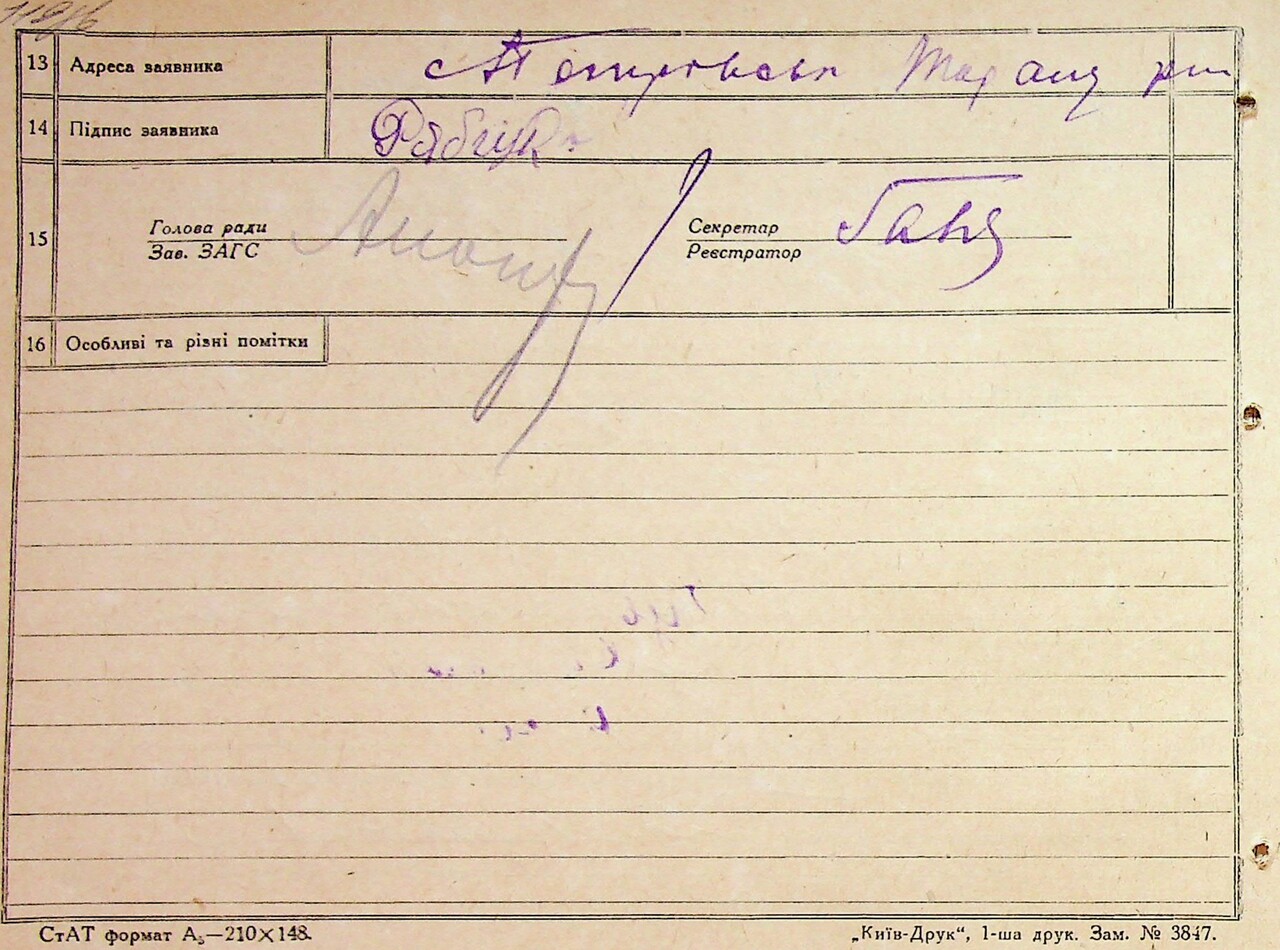 13 Адреса заявника с Петровськ Таращ р-н
14 Підпис заявника Рябчук
15 Голова ради Секретар
Зав. ЗАГС Реєстратор
16 Особливі та різні помітки
СтАТ формат А₅—210×148. „Київ-Друк“, 1-ша друк. Зам. № 3847.